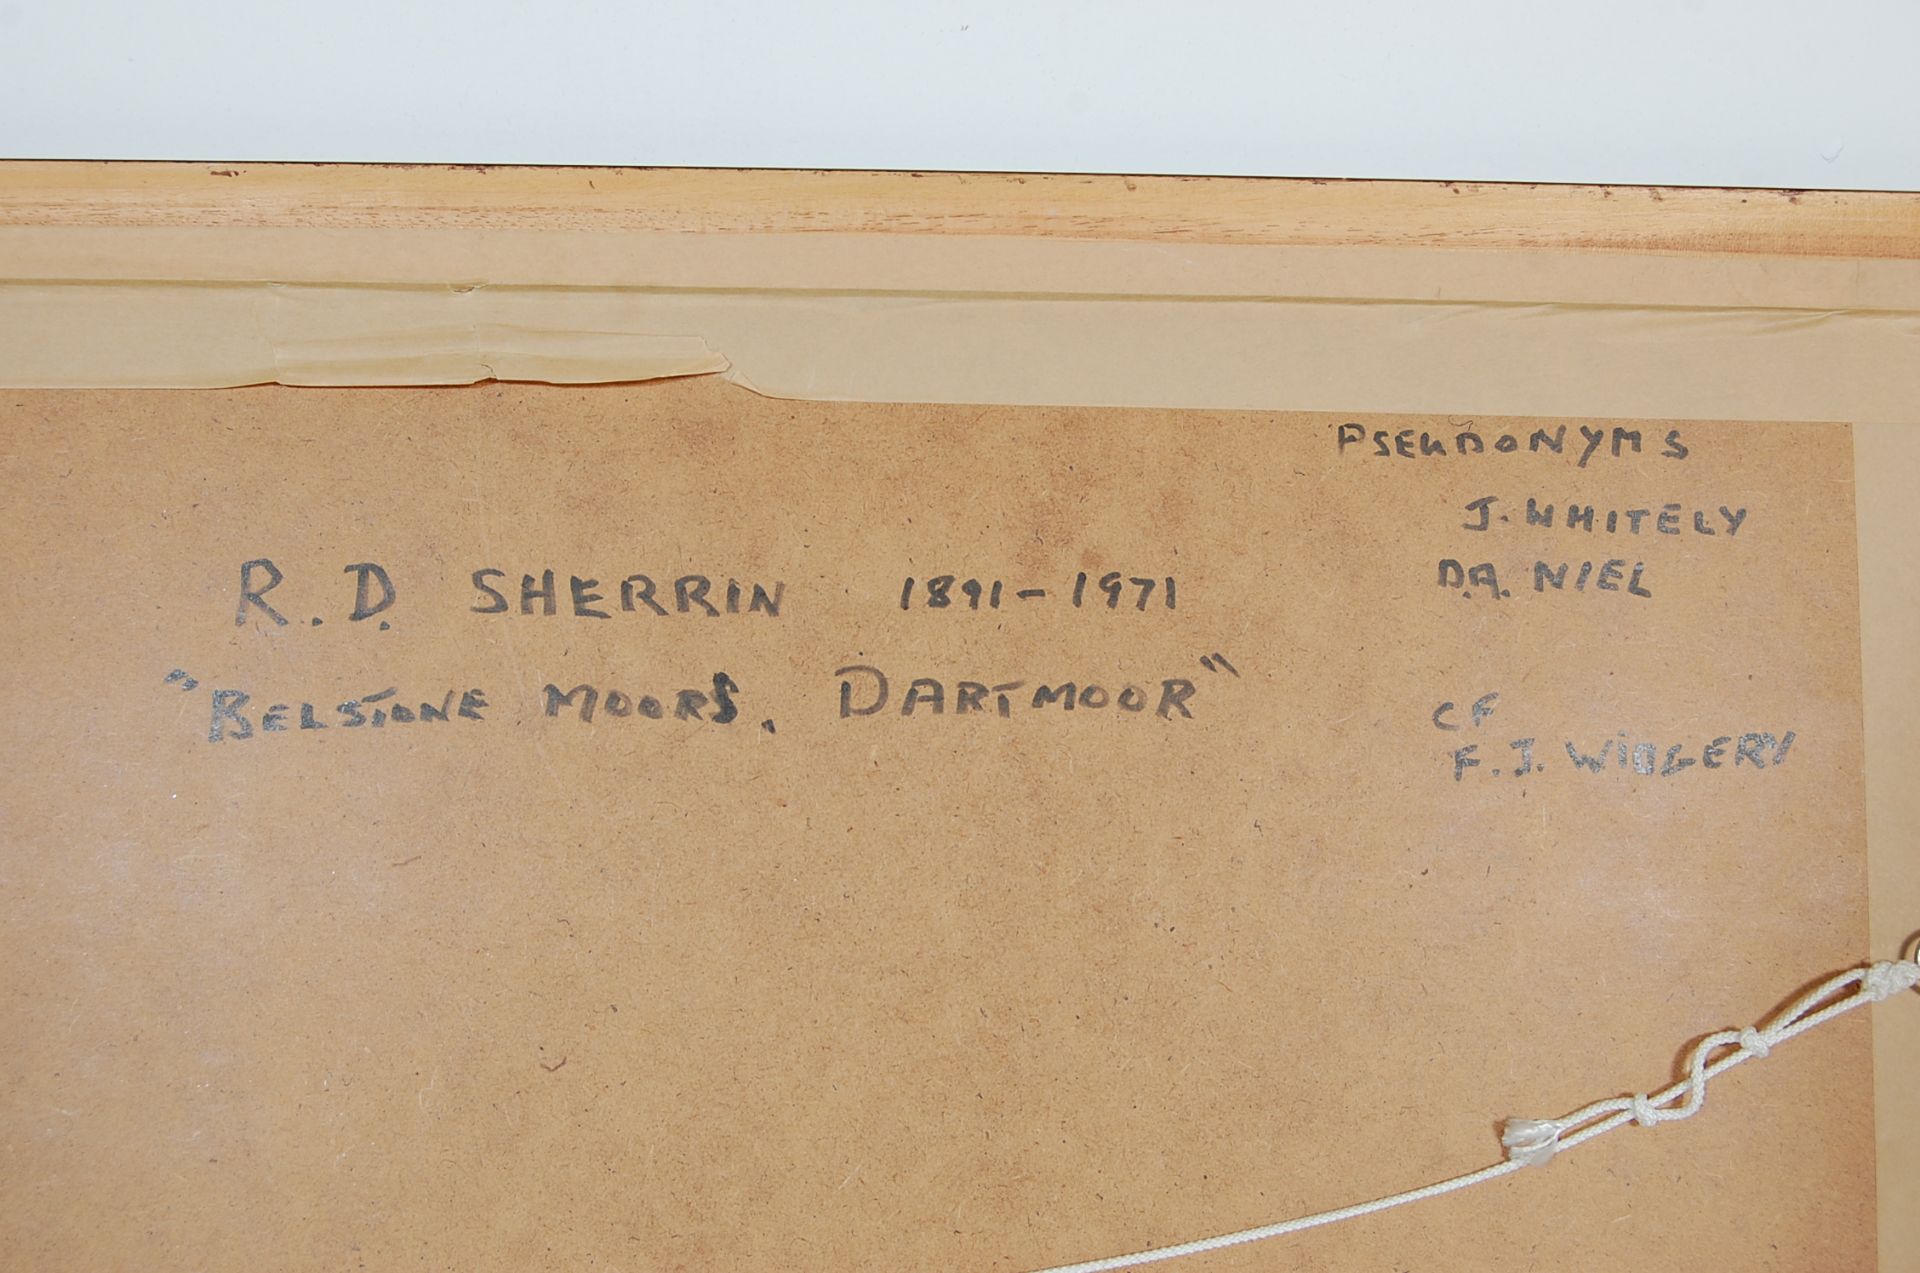 PSEUDONYMS
J. WHITELY
D.A. NIEL
R. D. SHERRIN 1891-1971
"BELSTONE MOORS, DARTMOOR"
CF
F. J. WIDGERY